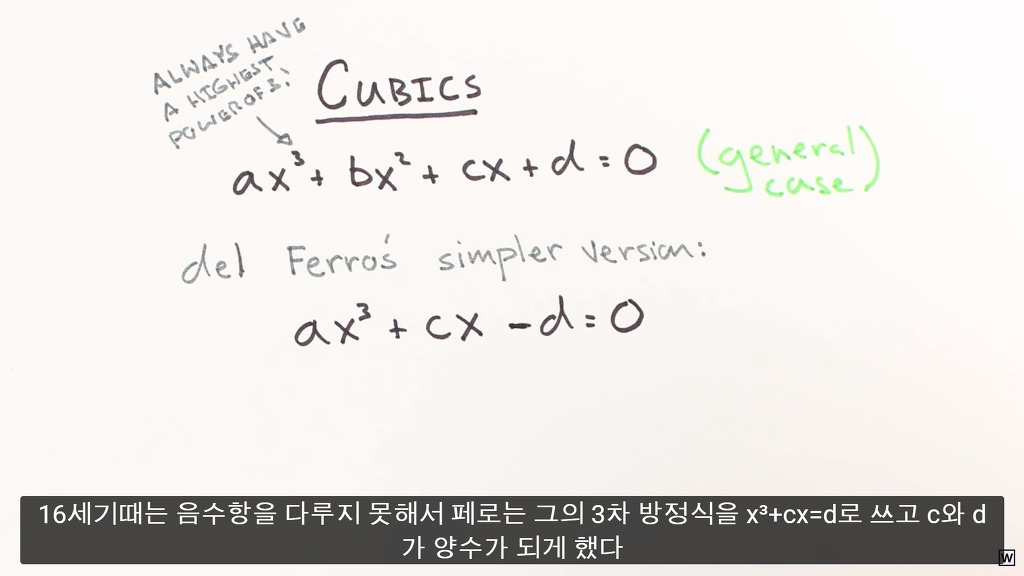 ALWAYS HAVE
A HIGHEST
POWER OF 3!
CUBICS
ax³ + bx² + cx + d = 0
(general
case)
del Ferro's simpler version:
ax³ + cx - d = 0
16세기때는 음수항을 다루지 못해서 페로는 그의 3차 방정식을 x³+cx=d로 쓰고 c와 d
가 양수가 되게 했다
W